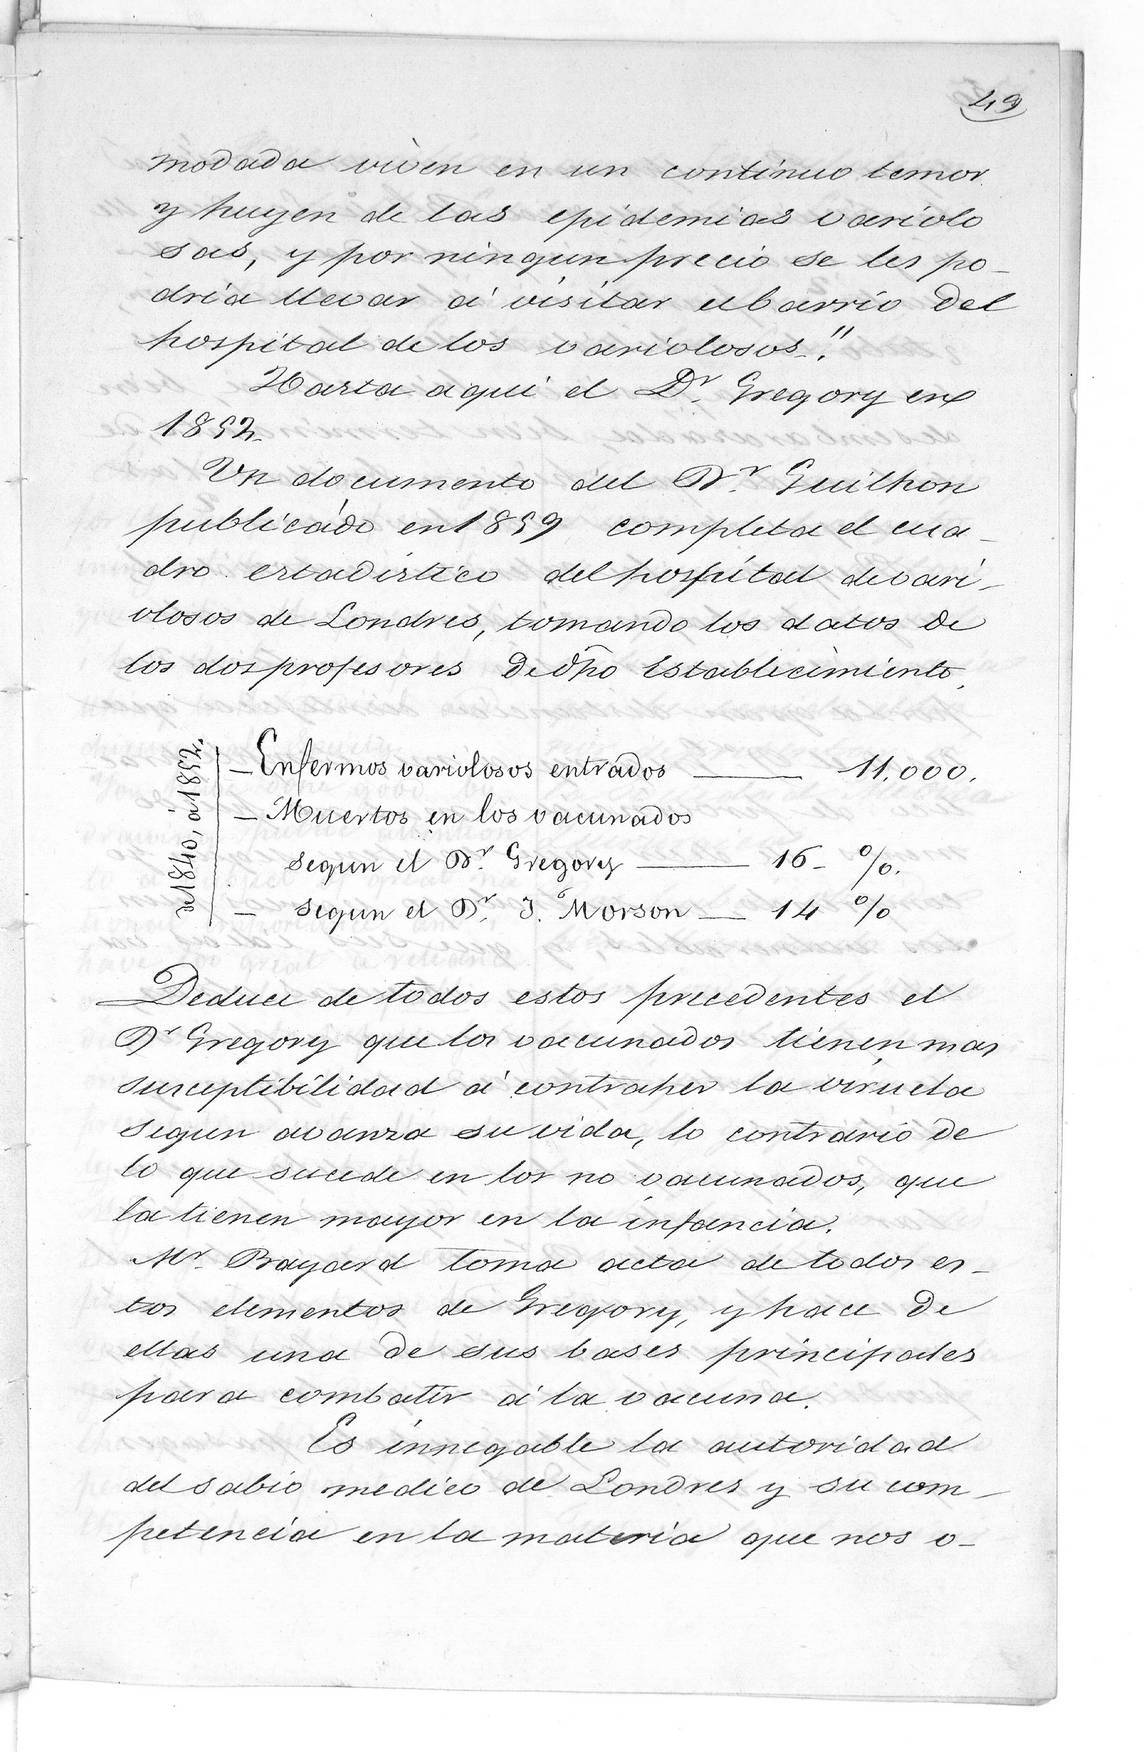 49
modada viven en un contínuo temor
y huyen de las epidemias variolo
sas, y por ningun precio se les po-
dria llevar á visitar el barrio del
hospital de los variolosos."
Hasta aqui el Dr. Gregory en
1852.
Un documento del Dr. Guilhon
publicádo en 1859 completa el cua-
dro estadístico del hospital de vari-
olosos de Londres, tomando los datos de
los dos profesores de dho Establecimiento.
de 1840, á 1852.
- Enfermos variolosos entrados —— 11.000.
- Muertos en los vacunados
segun el Dr. Gregory —— 16 - %.
- segun el Dr. J. Morson — 14 %
Deduce de todos estos precedentes el
Dr Gregory que los vacunados tienen mas
susceptibilidad á contraher la viruela
segun avanza su vida, lo contrario de
lo que sucede en los no vacunados, que
la tienen mayor en la infancia.
Mr. Bayard toma acta de todos es-
tos elementos de Gregory, y hace de
ellas una de sus bases principales
para combatir á la vacuna.
Es innegable la autoridad
del sabio medico de Londres y su com-
petencia en la materia que nos o-